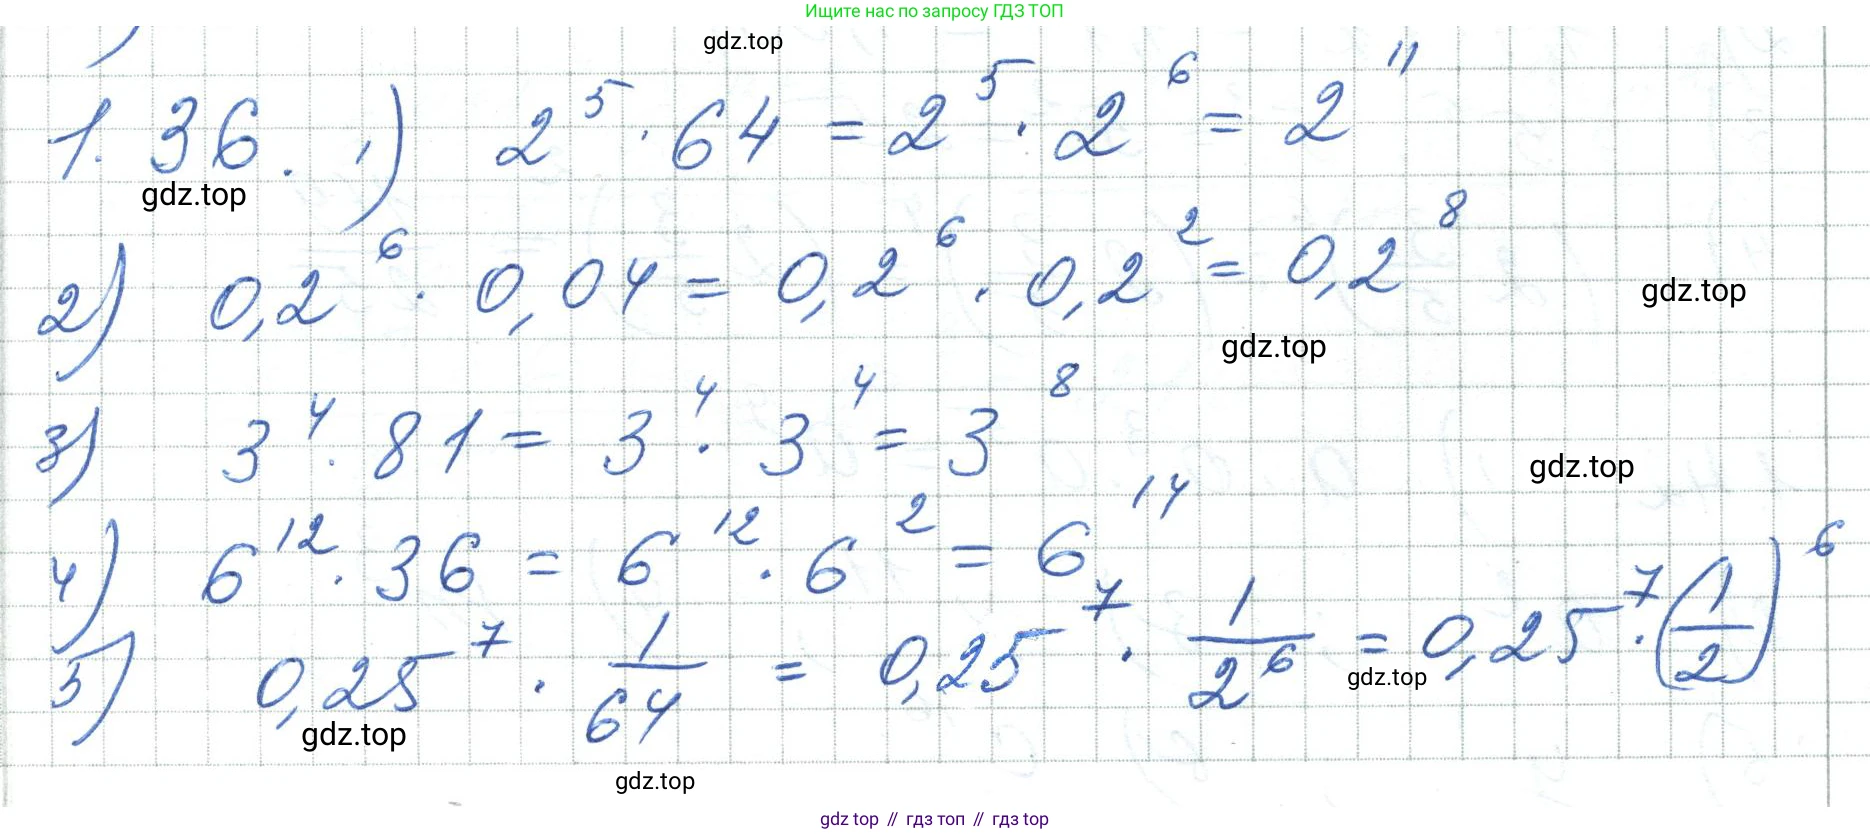 Ищите нас по запросу ГДЗ ТОП
gdz.top
1.36. 1) 2⁵ · 64 = 2⁵ · 2⁶ = 2¹¹
gdz.top
2) 0,2⁶ · 0,04 = 0,2⁶ · 0,2² = 0,2⁸
gdz.top
gdz.top
3) 3⁴ · 81 = 3⁴ · 3⁴ = 3⁸
gdz.top
4) 6¹² · 36 = 6¹² · 6² = 6¹⁴
5) 0,25⁷ · 1/64 = 0,25⁷ · 1/2⁶ = 0,25⁷ · (1/2)⁶
gdz.top
gdz.top
gdz.top
gdz top // гдз топ // гдз top